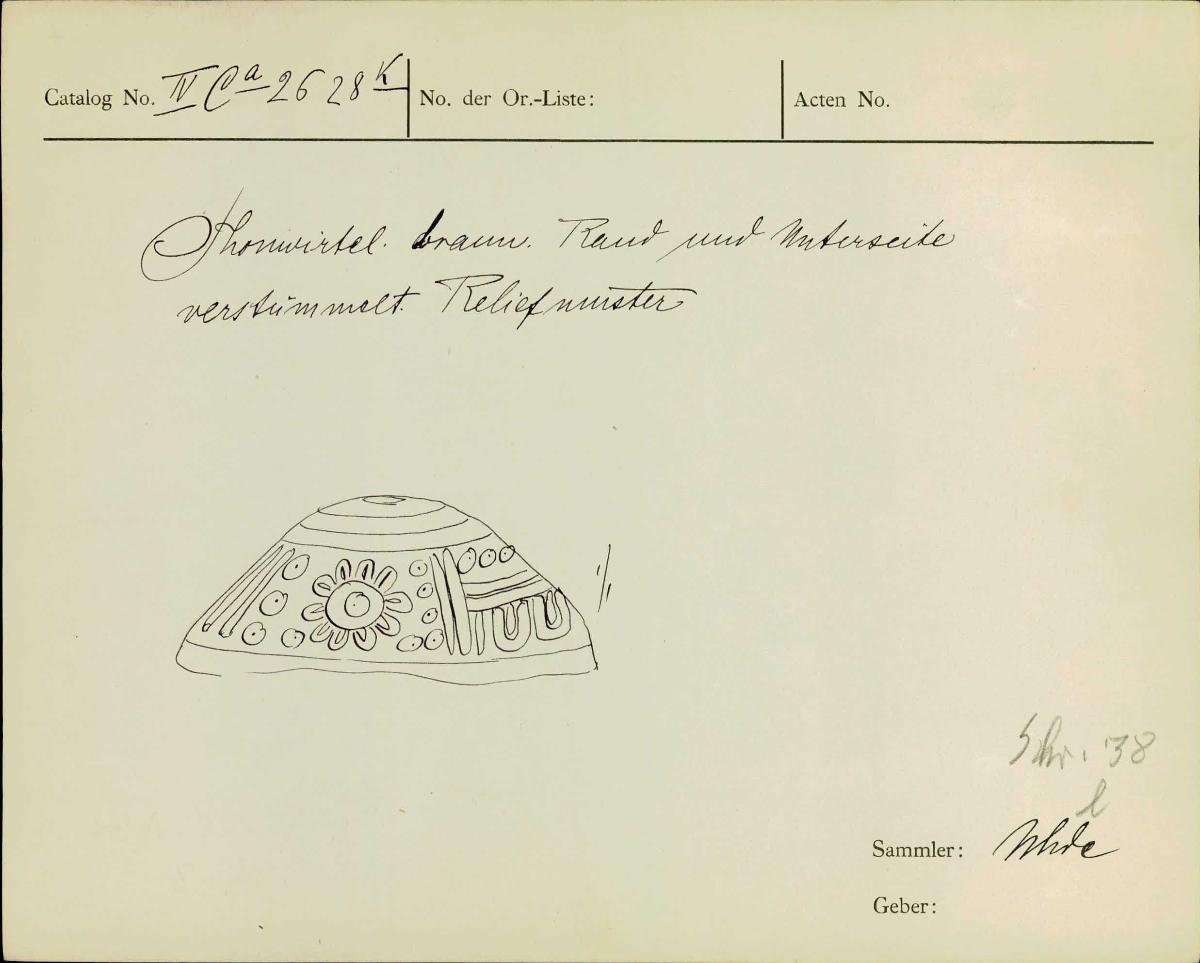 Catalog No. IV Ca 2628 K No. der Or.-Liste: Acten No.
Thonwirtel. braun. Rand und Unterseite
verstümmelt. Reliefmuster
1/1
Schr. 38
l
Sammler: Uhde
Geber: